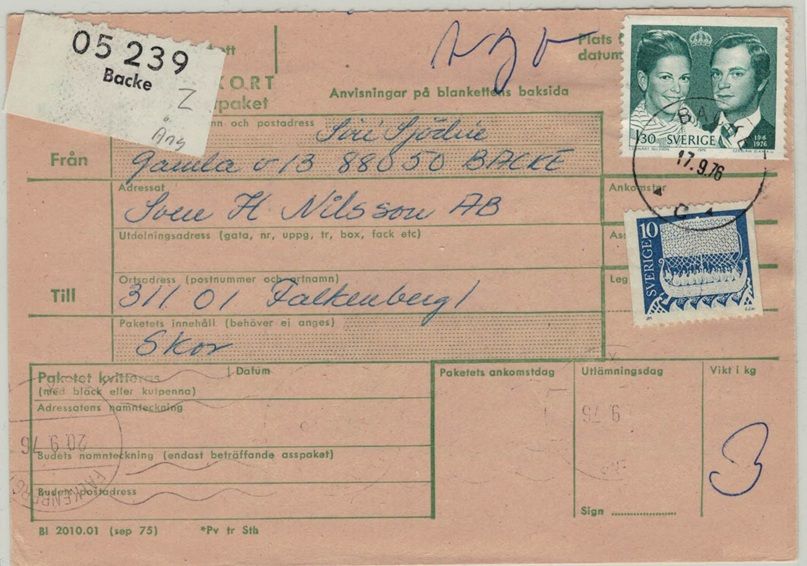 05 239
Backe
Z
Äng
KORT
paket
Anvisningar på blankettens baksida
Plats
datum
130 SVERIGE
1976
BACKE
17.9.76
Från
namn och postadress
Siri Sjödin
Gamla v 13 88050 BACKE
Adressat
Sven H. Nilsson AB
Ankomstnr
Utdelningsadress (gata, nr, uppg, tr, box, fack etc)
SVERIGE 10
Till
Ortsadress (postnummer och ortnamn)
311 01 Falkenberg 1
Paketets innehåll (behöver ej anges)
Skor
Paketet kvitteras
(med bläck eller kulpenna)
Datum
Paketets ankomstdag
Utlämningsdag
Vikt i kg
Adressatens namnteckning
20 9 76
9 76
3
Budets namnteckning (endast beträffande asspaket)
FALKENBERG
Budets postadress
Sign
Bl 2010.01 (sep 75) *Pv tr Sth